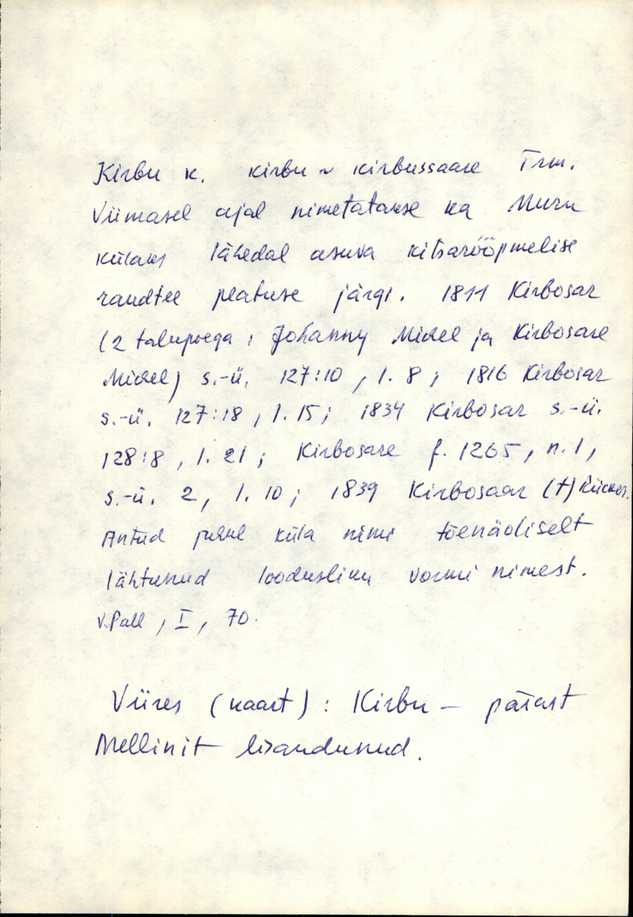 Kirbu k. kirbu ~ kirbussaare Trm.
Viimasel ajal nimetatakse ka Muru
külaks lähedal asuva kitsarööpmelise
raudtee peatuse järgi. 1811 Kirbosar
(2 talupoega: Johanny Mickel ja Kirbosare
Mickel) s.-ü. 127:10, l. 8; 1816 Kirbosar
s.-ü. 127:18, l. 15; 1834 Kirbosar s.-ü.
128:8, l. 21; Kirbosare f. 1265, n. 1,
s.-ü. 2, l. 10; 1839 Kirbosaar (†) Rücker.
Antud juhul küla nimi tõenäoliselt
lähtunud loodusliku vormi nimest.
V. Pall, I, 70.
Viires (kaart): Kirbu — pärast
Mellinit lisandunud.